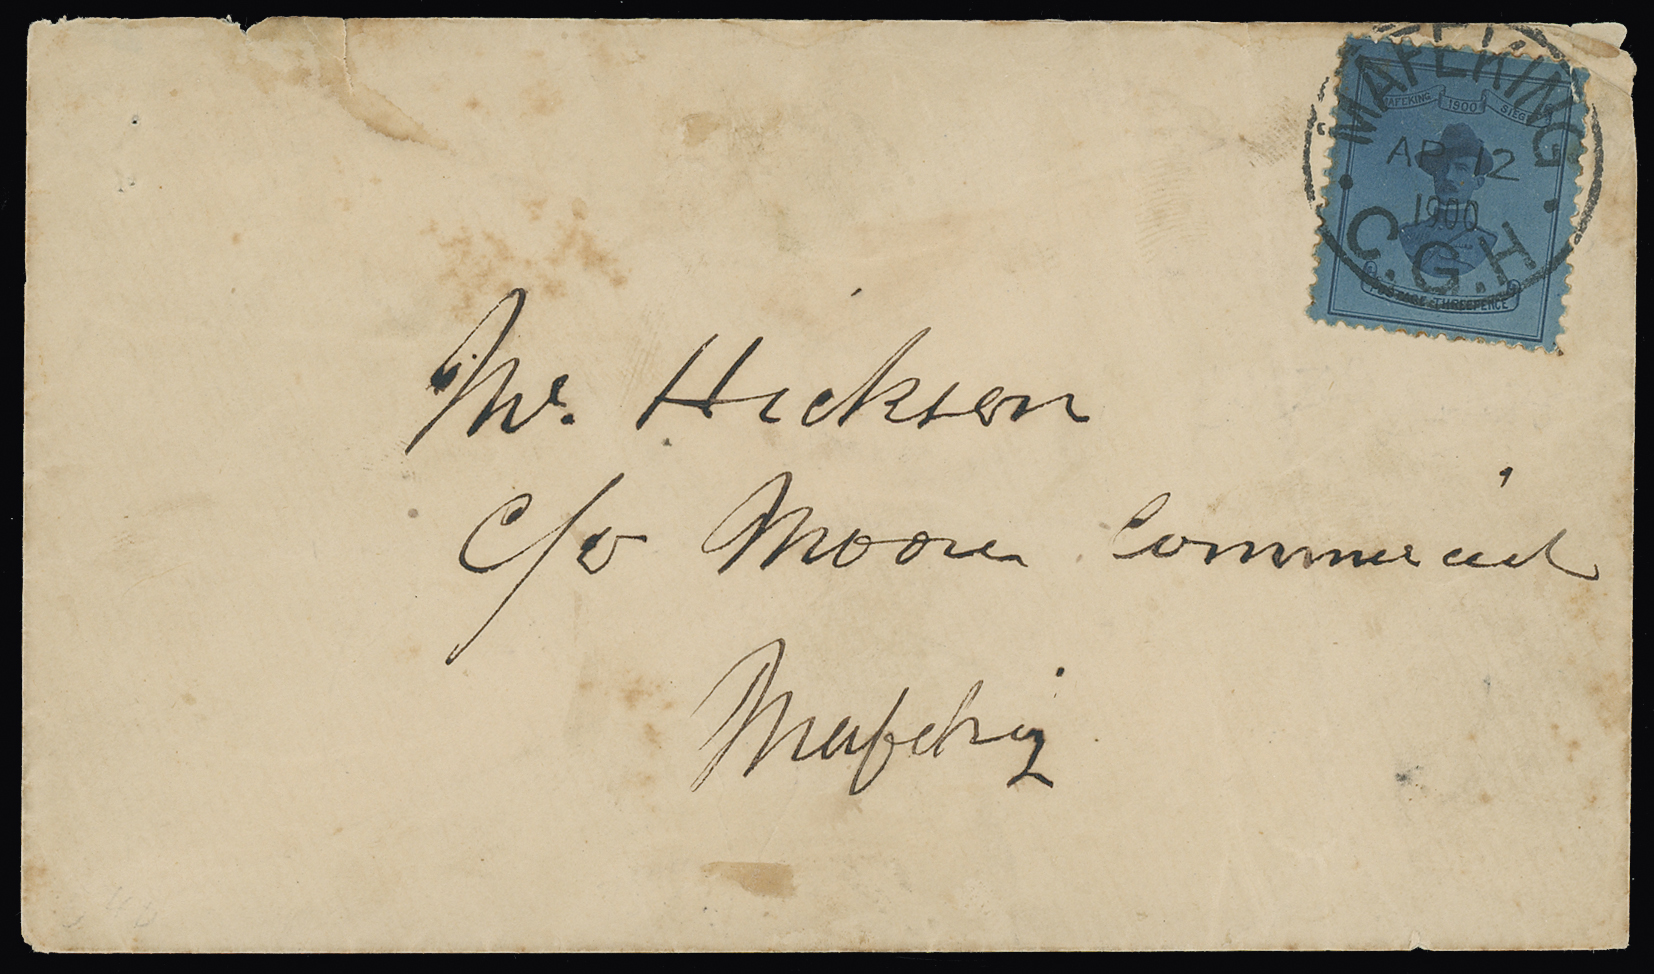 MAFEKING
AP 12
1900
C.G.H
MAFEKING 1900 SIEGE
POSTAGE THREEPENCE
Mr. Hickson
c/o Moore Commercial
Mafeking